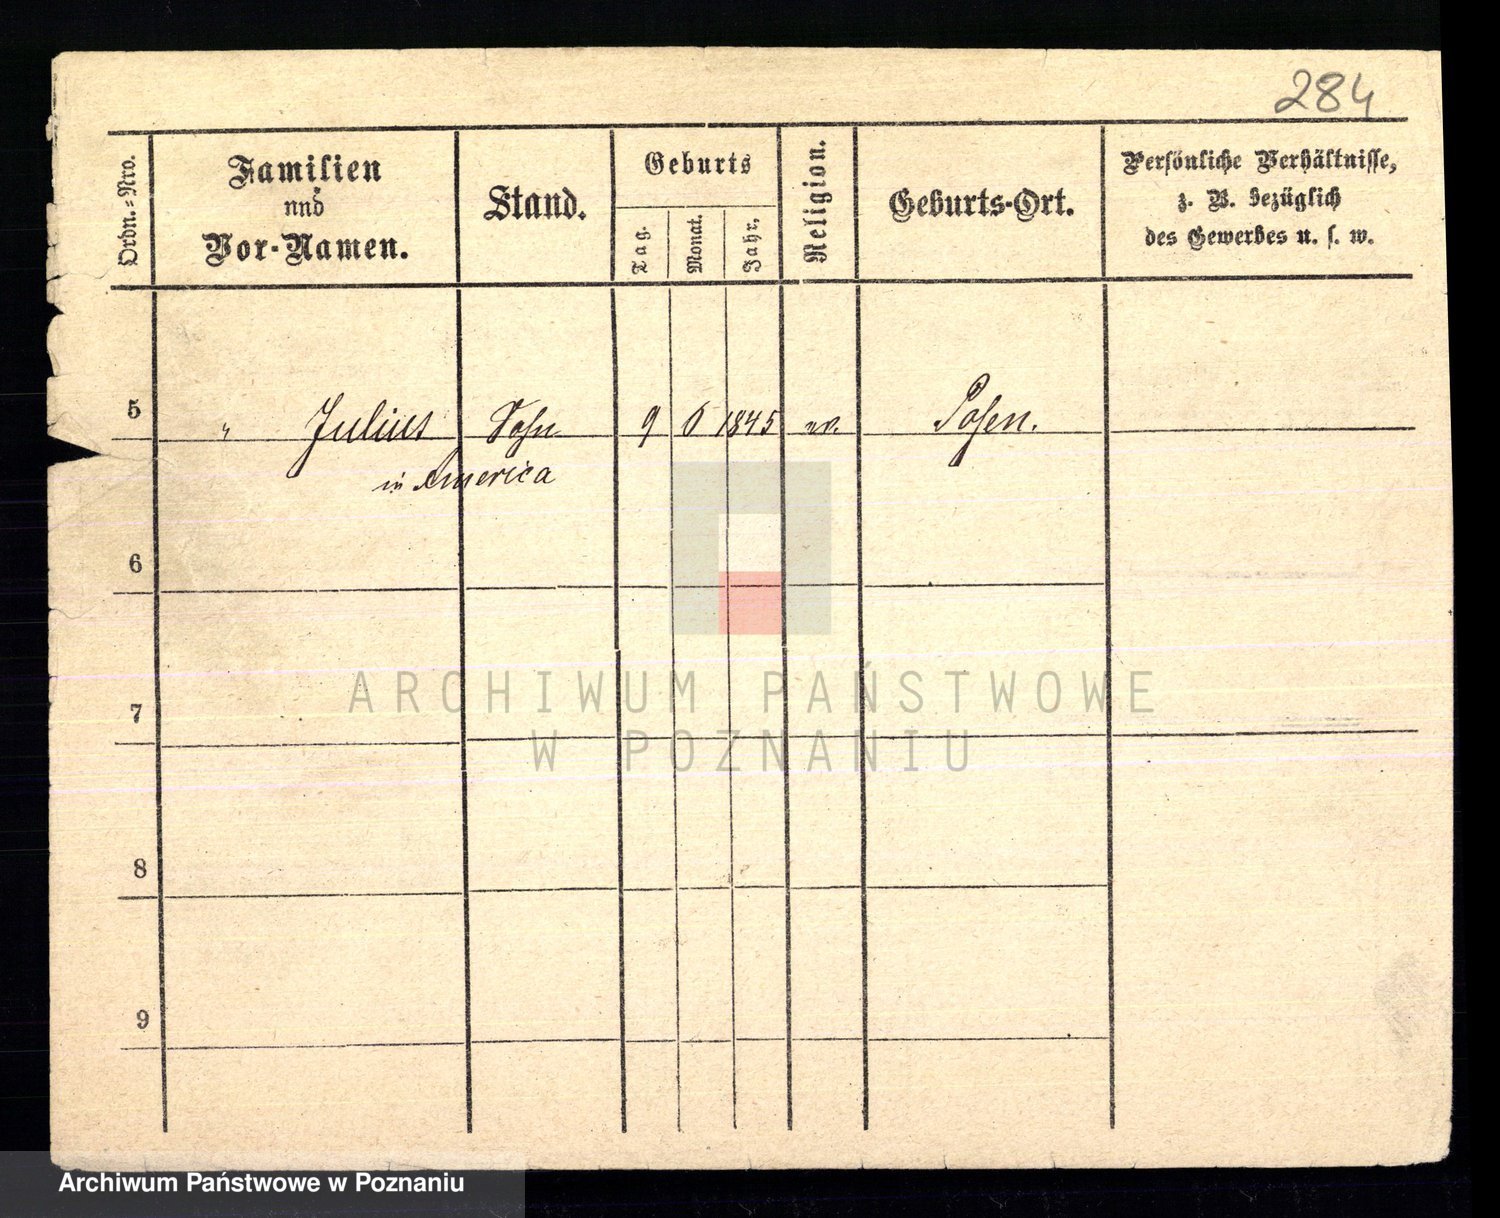 284
Ordn.-Nro.
Familien
nnd
Vor-Namen.
Stand.
Geburts
Tag.
Monat.
Jahr.
Religion.
Geburts-Ort.
Persönliche Verhältnisse,
z. B. bezüglich
des Gewerbes u. s. w.
5 " Julius Sohn 9 6 1845 ev. Posen.
in America
6
7
8
9
ARCHIWUM PAŃSTWOWE
W POZNANIU
Archiwum Państwowe w Poznaniu